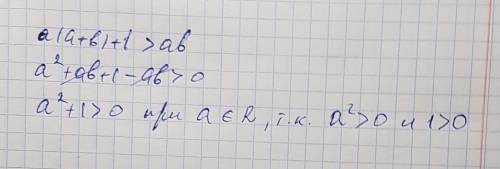 a(a+b)+1>ab
a²+ab+1-ab>0
a²+1>0 при a∈R, т.к. a²>0 и 1>0